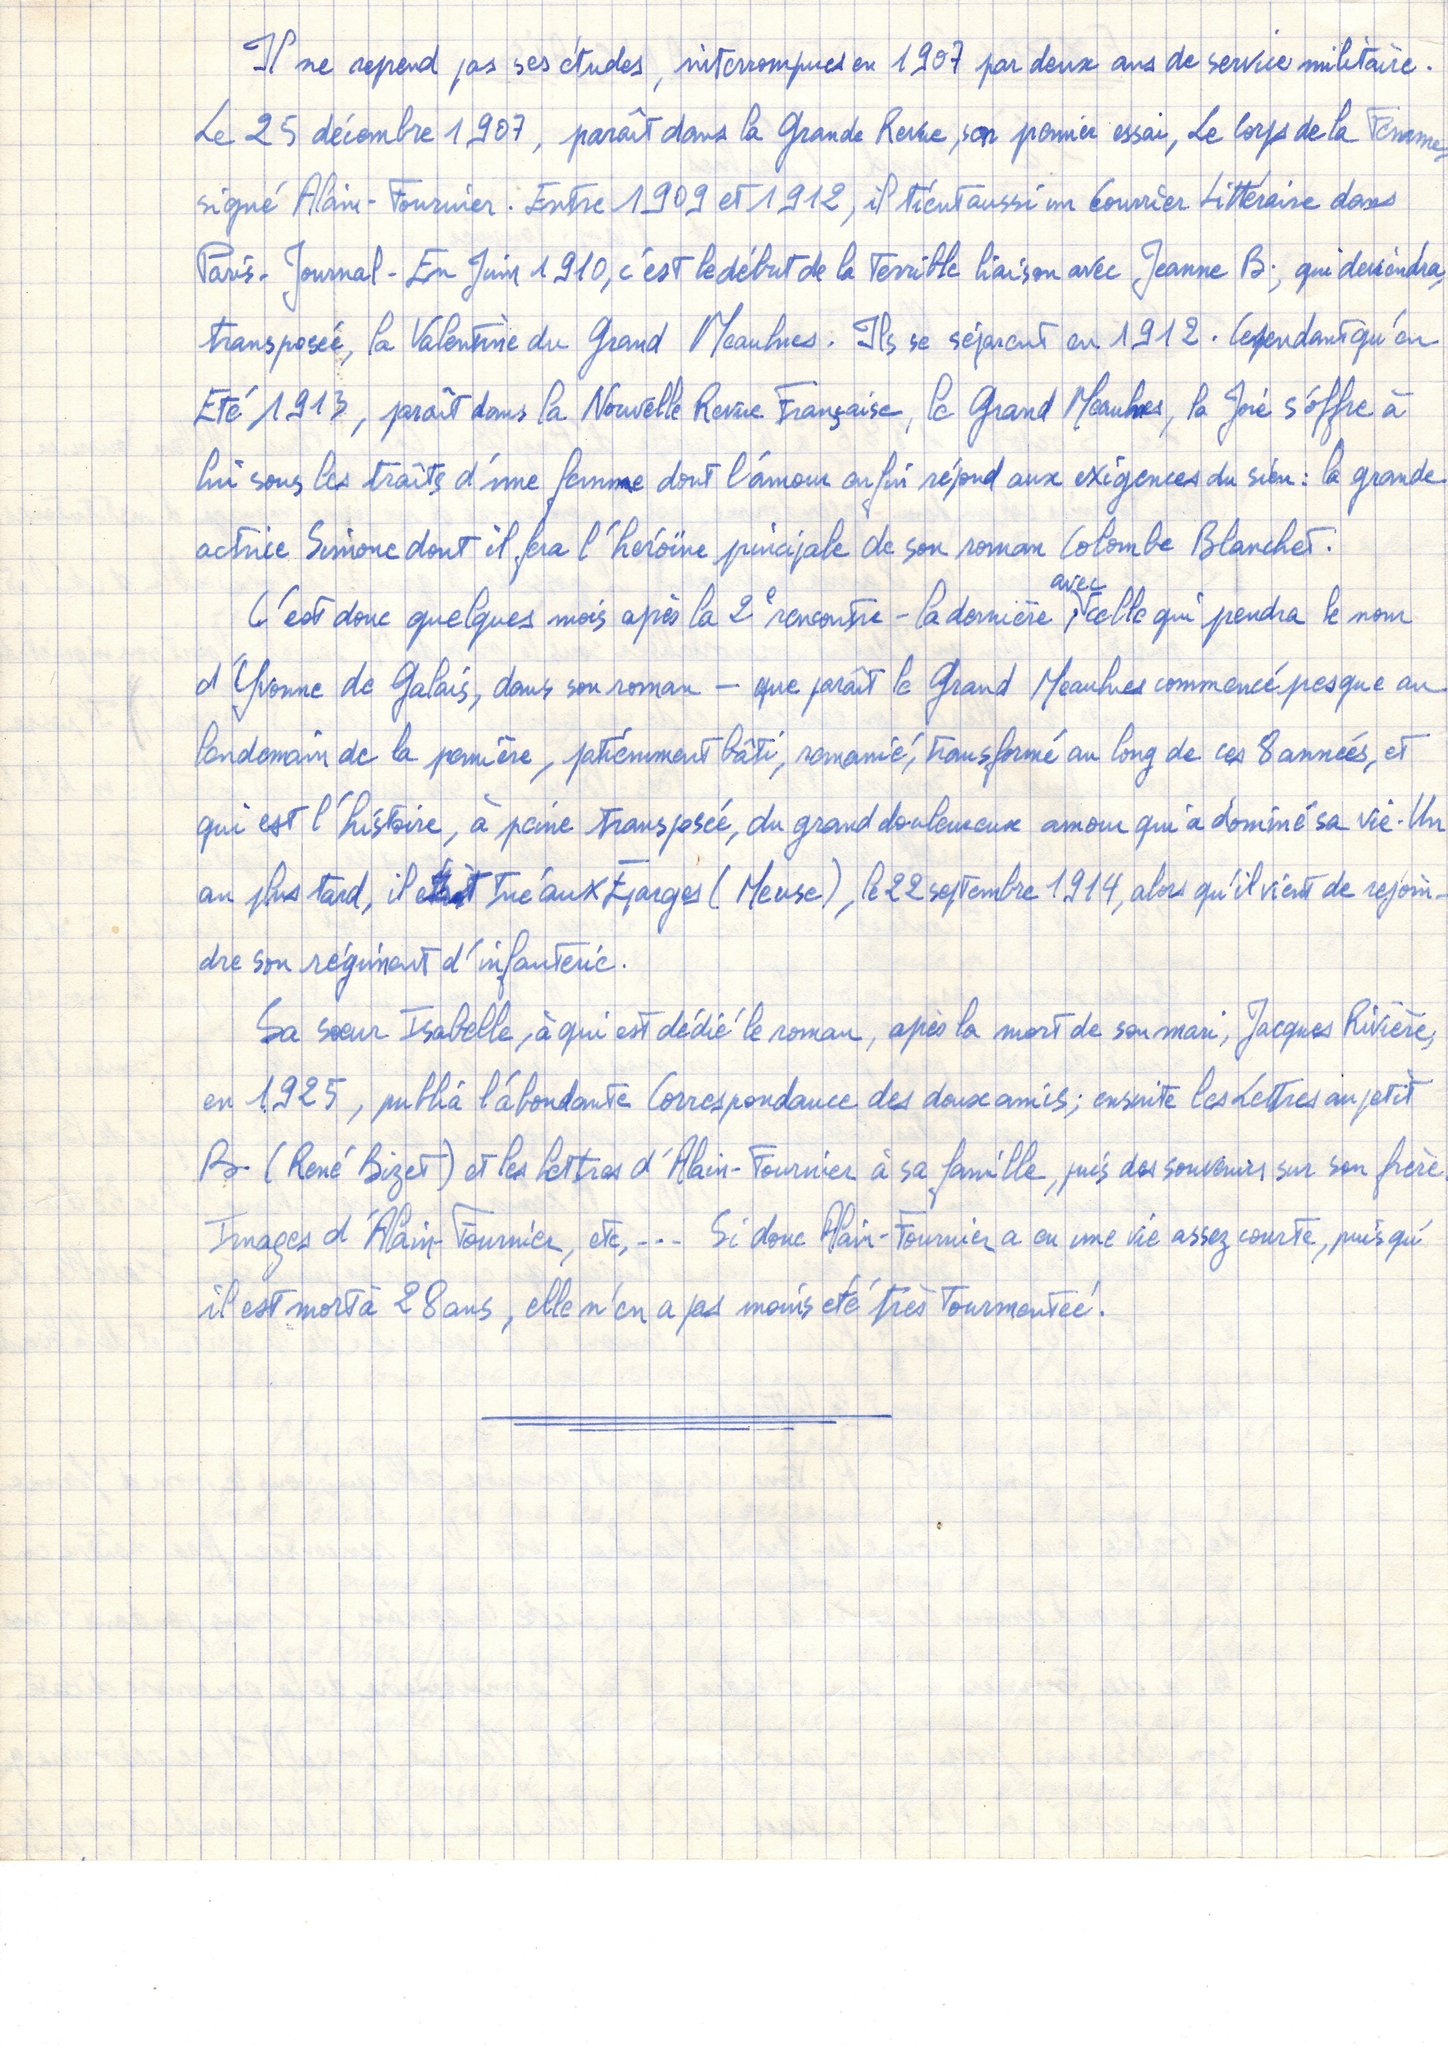 Il ne reprend pas ses études, interrompues en 1907 par deux ans de service militaire.
Le 25 décembre 1907, paraît dans la Grande Revue, son premier essai, Le Corps de la Femme,
signé Alain-Fournier. Entre 1909 et 1912, il tient aussi un Courrier Littéraire dans
Paris-Journal - En Juin 1910, c'est le début de la terrible liaison avec Jeanne B., qui deviendra,
transposée, la Valentine du Grand Meaulnes. Ils se séparent en 1912. Cependant qu'en
Eté 1913, paraît dans la Nouvelle Revue Française, le Grand Meaulnes, la Joie s'offre à
lui sous les traits d'une femme dont l'amour enfin répond aux exigences du sien : la grande
actrice Simone dont il fera l'héroïne principale de son roman Colombe Blanchet.
C'est donc quelques mois après la 2e rencontre - la dernière, avec celle qui prendra le nom
d'Yvonne de Galais, dans son roman - que paraît le Grand Meaulnes commencé presque au
lendemain de la première, patiemment bâti, remanié, transformé au long de ces 8 années, et
qui est l'histoire, à peine transposée, du grand douloureux amour qui a dominé sa vie. Un
an plus tard, il était tué aux Eparges (Meuse), le 22 septembre 1914, alors qu'il vient de rejoin-
dre son régiment d'infanterie.
Sa sœur Isabelle, à qui est dédié le roman, après la mort de son mari, Jacques Rivière,
en 1925, publia l'abondante Correspondance des deux amis ; ensuite les Lettres au petit
B. (René Bizet) et les lettres d'Alain-Fournier à sa famille, puis des souvenirs sur son frère.
Images d'Alain-Fournier, etc, --- Si donc Alain-Fournier a eu une vie assez courte, puisqu'
il est mort à 28 ans, elle n'en a pas moins été très tourmentée.